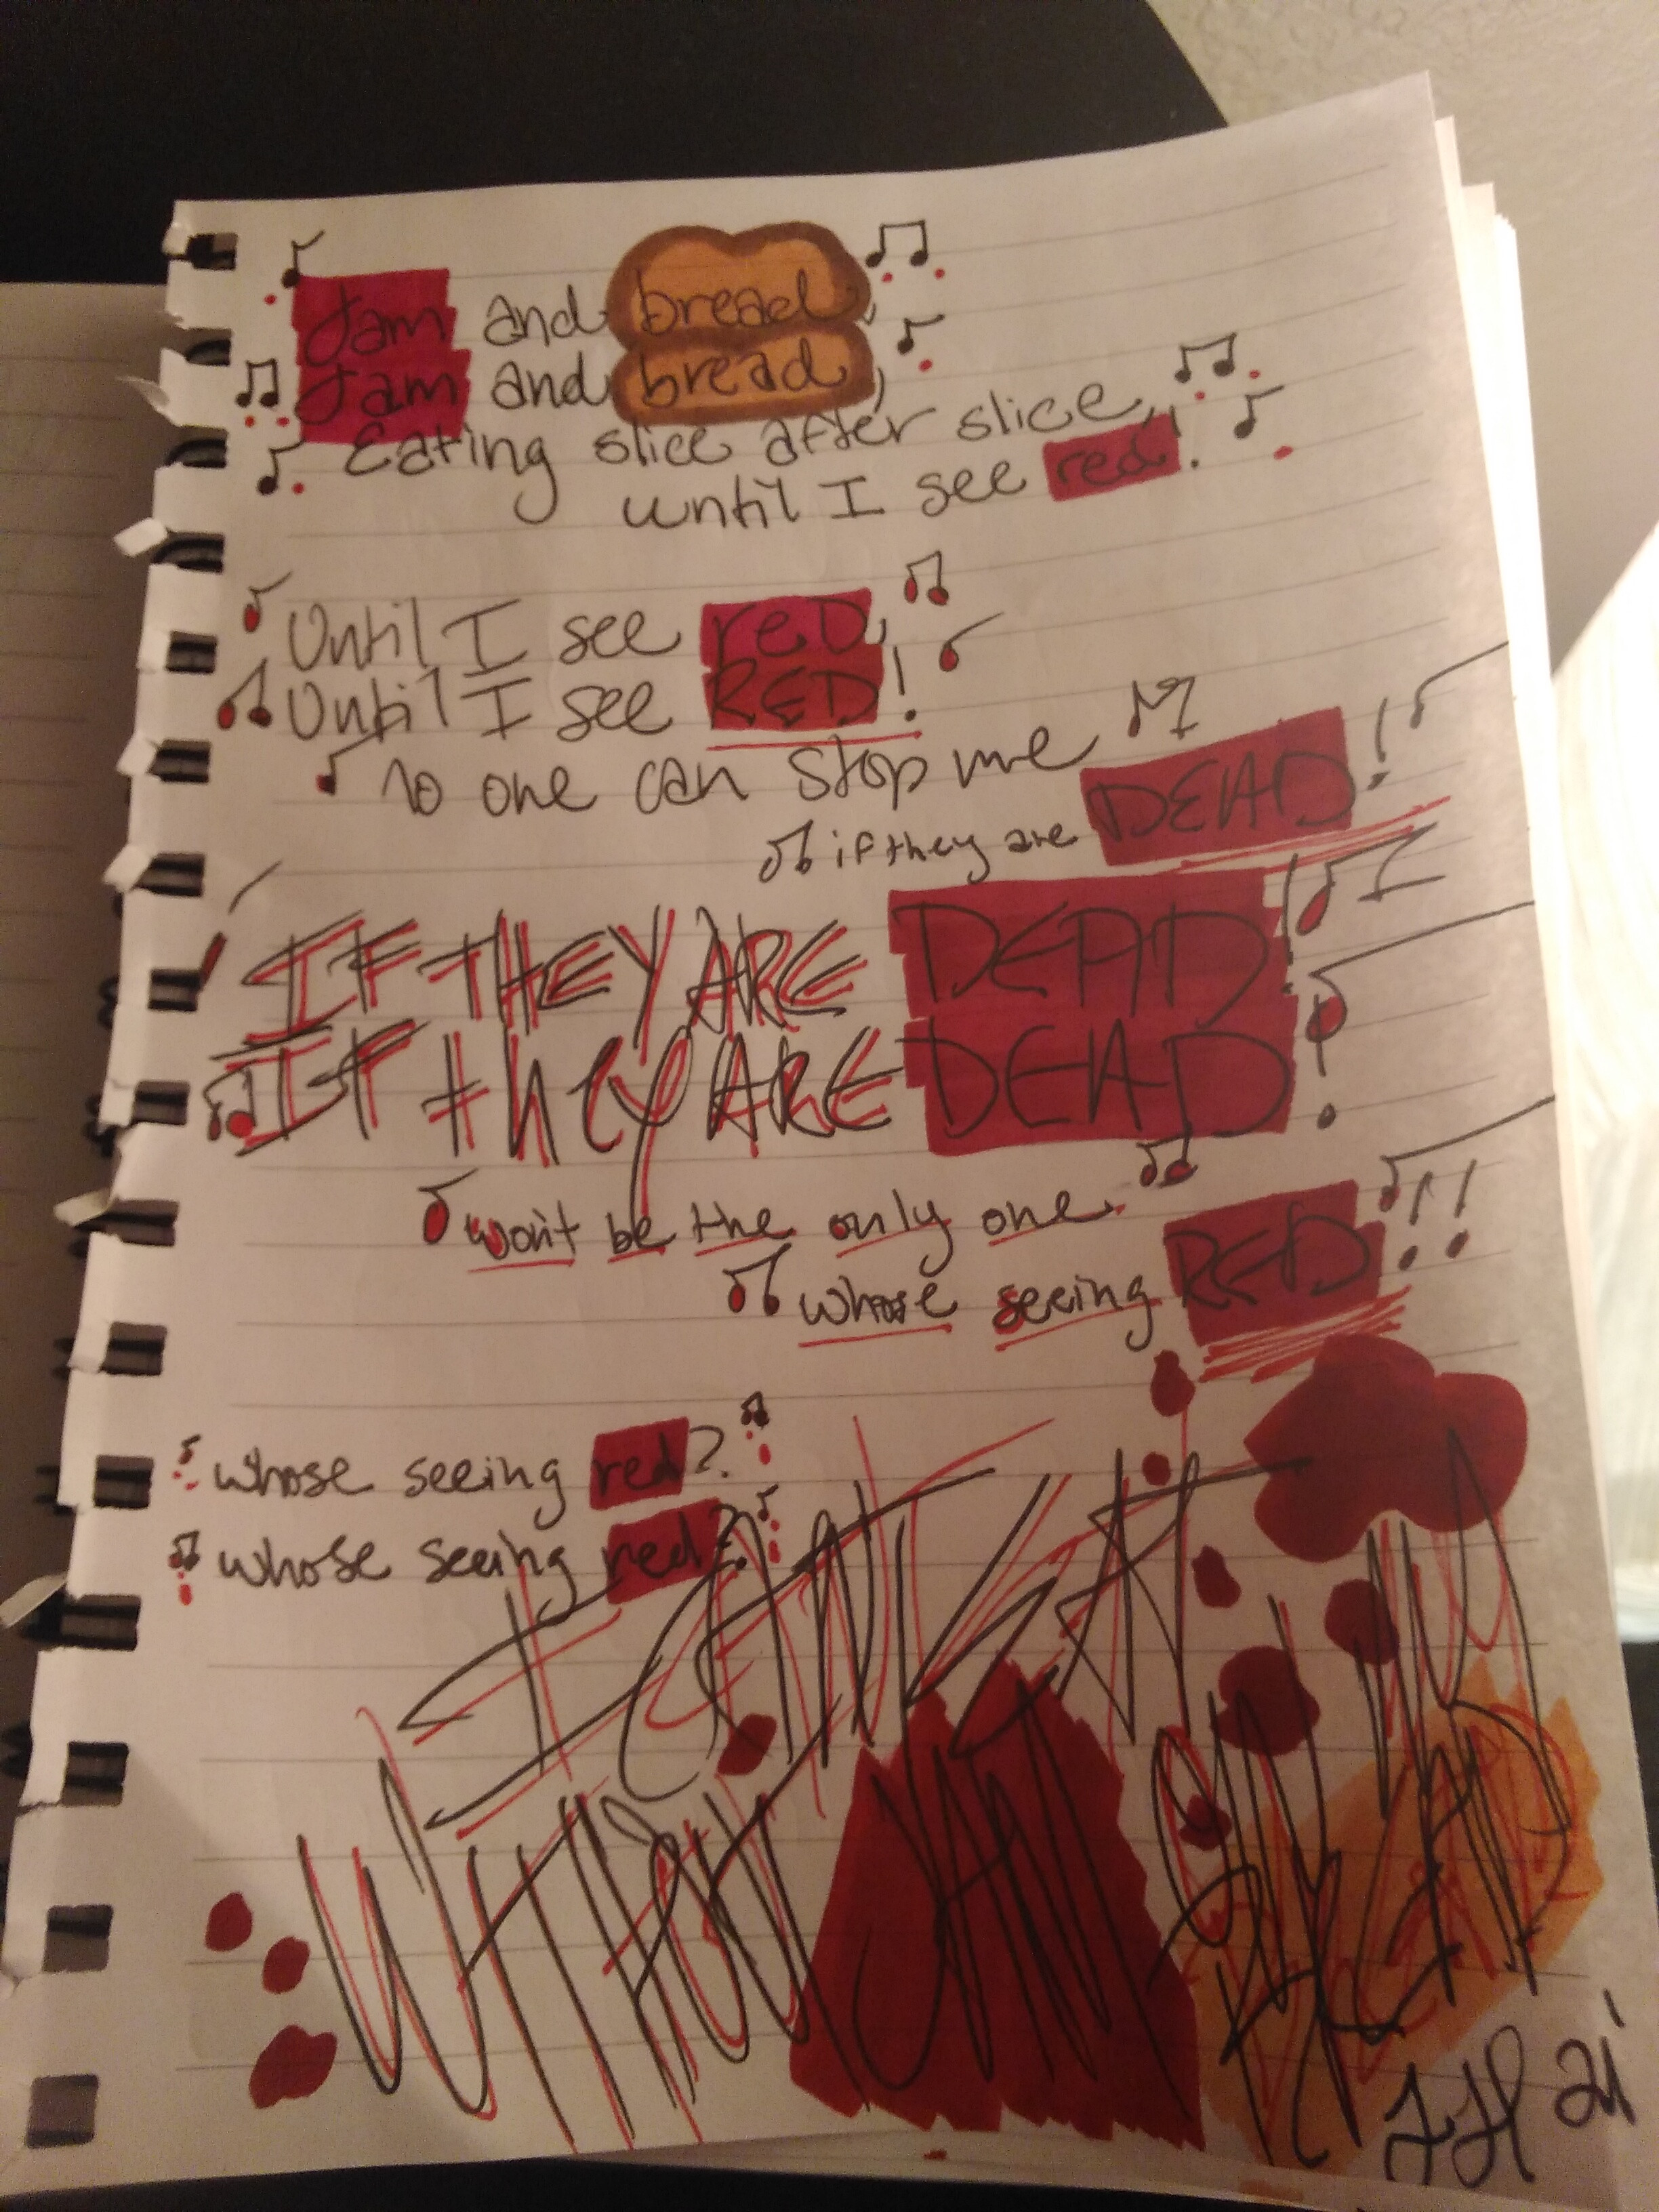 Jam and bread,
Jam and bread,
Eating slice after slice,
until I see red.
Until I see reD,
Until I see RED!
No one can stop me
if they are DEAD!
IF THEY ARE DEAD!
IF they ARE DEAD!
won't be the only one
whose seeing RED!!
whose seeing red?
whose seeing red?
I CAN'T EAT MY
WITHOUT JAM ON MY
BREAD
JH 21'